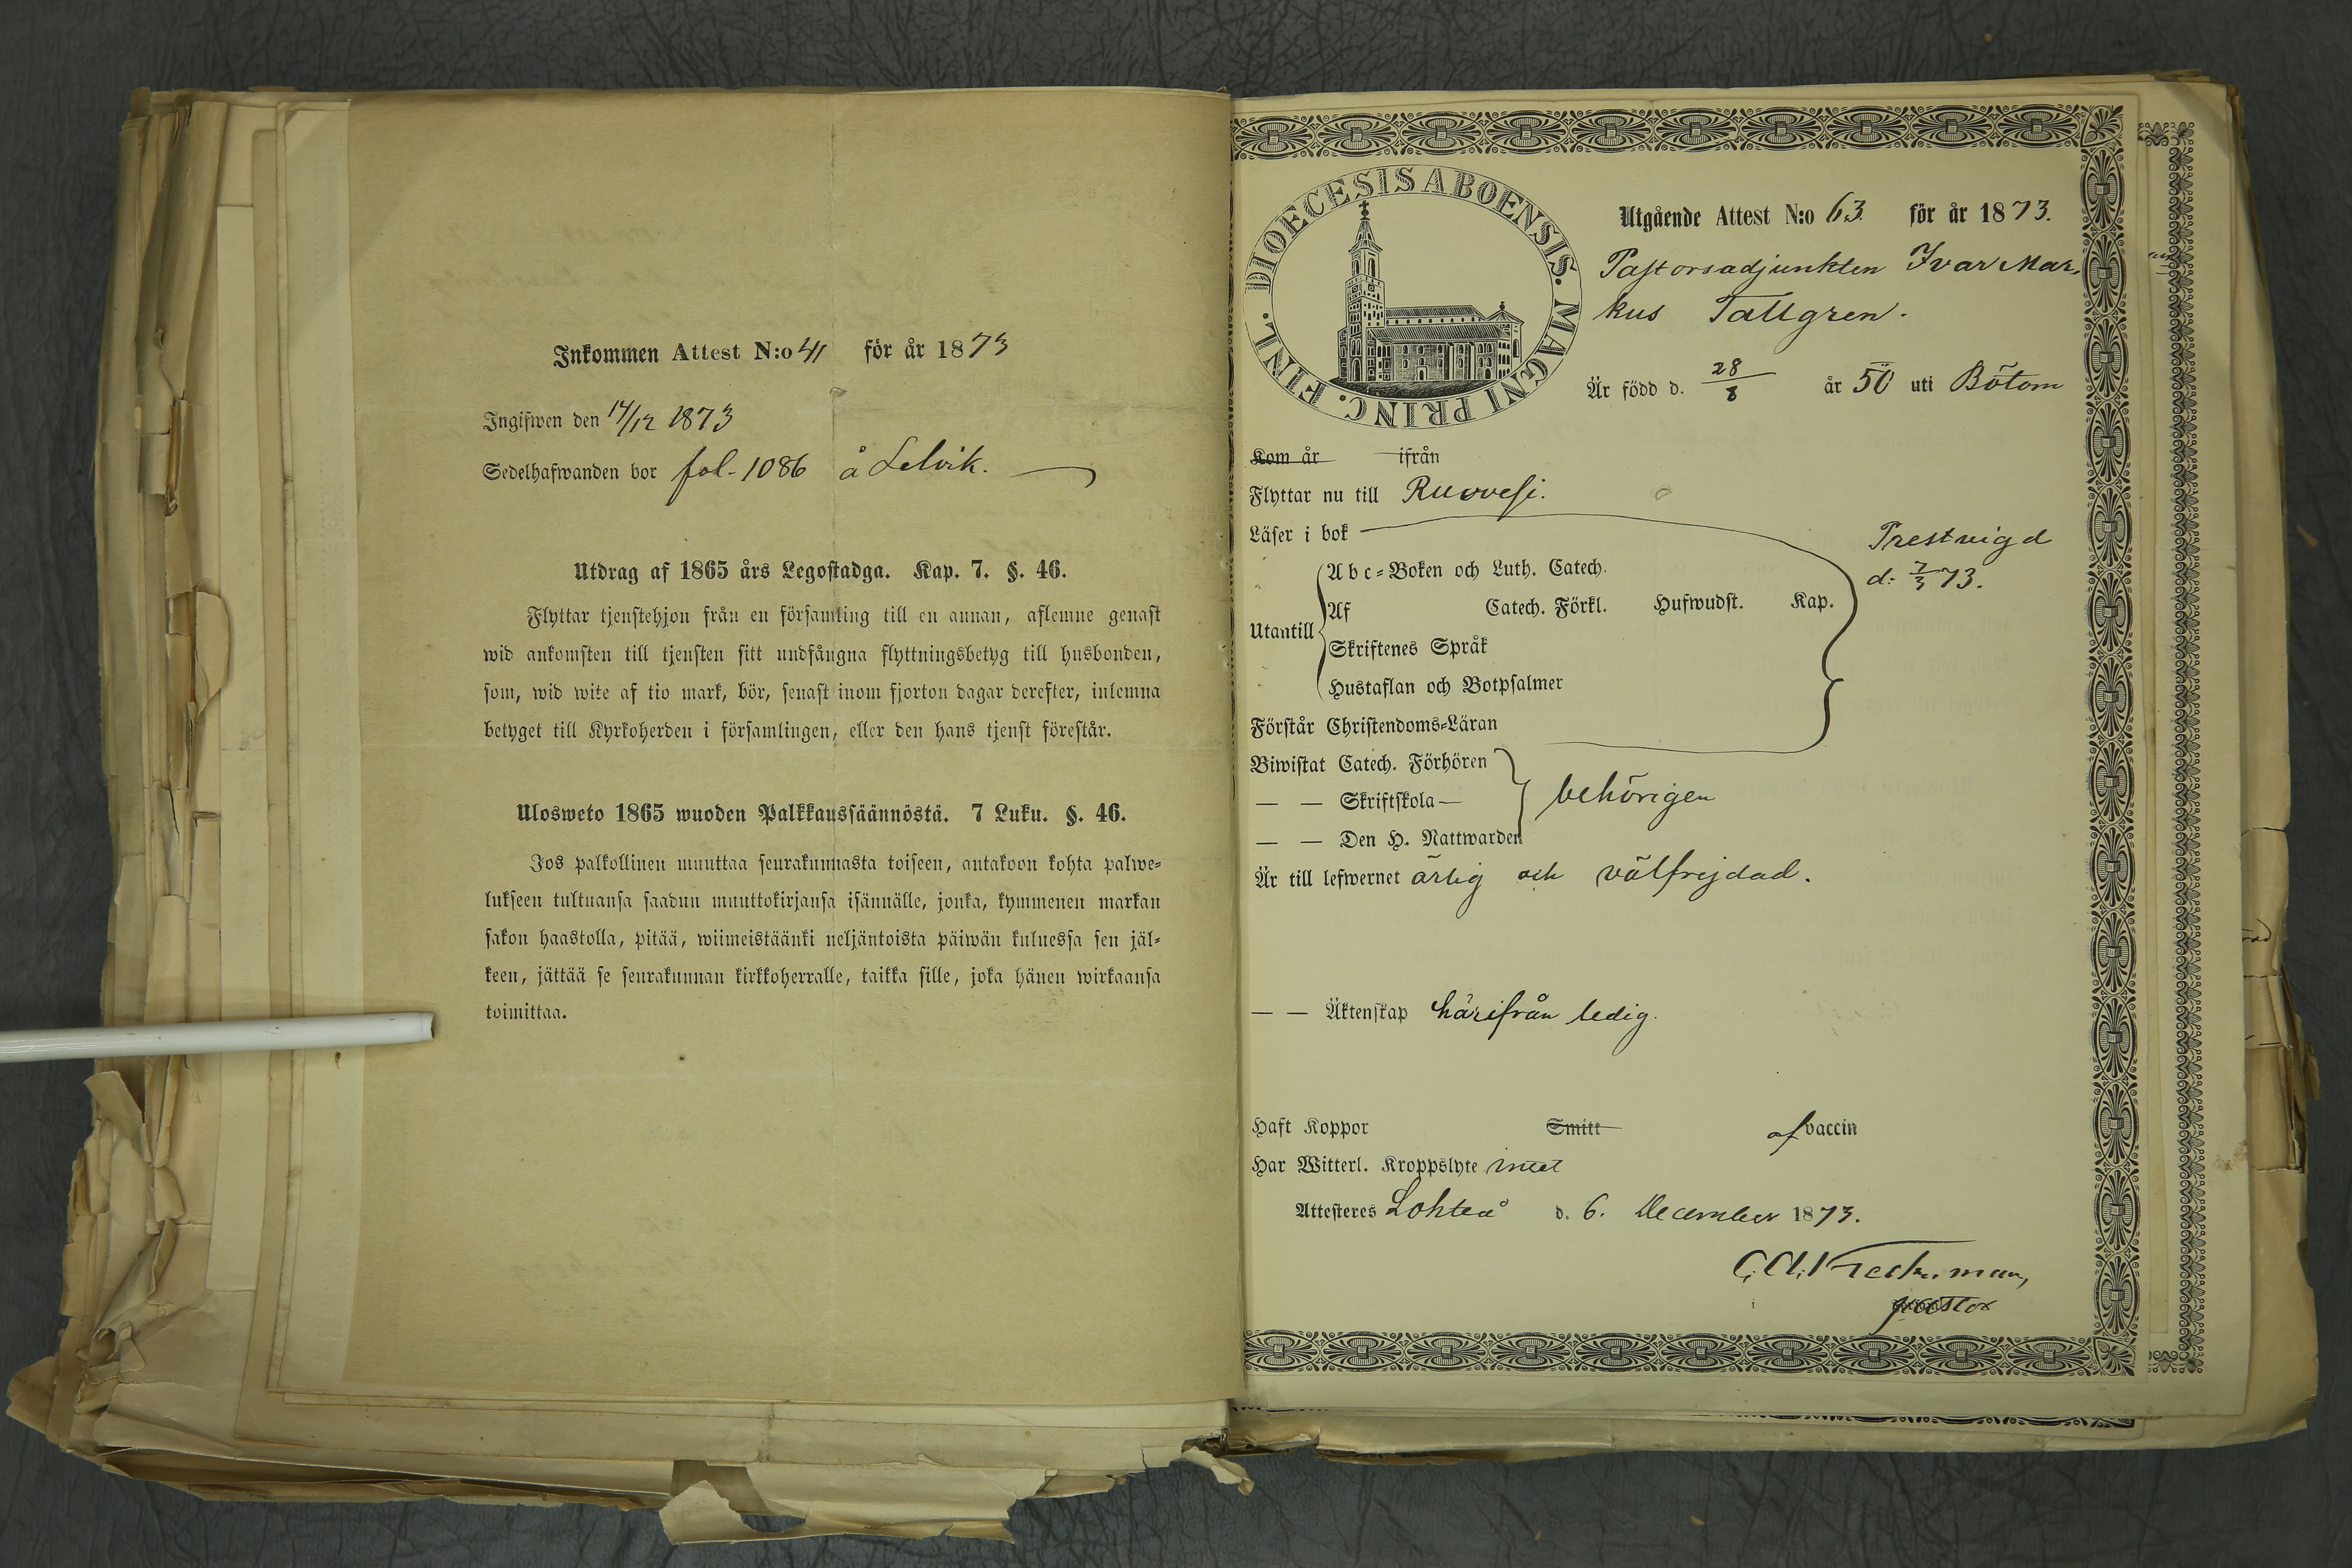 Inkommen Attest N:o 41 för år 1873
Ingifwen den 14/12 1873
Sedelhafwanden bor fol. 1086 å Selvik.
Utdrag af 1865 års Legostadga. Kap. 7. §. 46.
Flyttar tjenstehjon från en församling till en annan, aflemne genast
wid ankomsten till tjensten sitt undfångna flyttningsbetyg till husbonden,
som, wid wite af tio mark, bör, senast inom fjorton dagar derefter, inlemna
betyget till Kyrkoherden i församlingen, eller den hans tjenst förestår.
Ulosweto 1865 wuoden Palkkaussäännöstä. 7 Luku. §. 46.
Jos palkollinen muuttaa seurakunnasta toiseen, antakoon kohta palwe=
lukseen tultuansa saadun muuttokirjansa isännälle, jonka, kymmenen markan
sakon haastolla, pitää, wiimeistäänki neljäntoista päiwän kuluessa sen jäl=
keen, jättää se seurakunnan kirkkoherralle, taikka sille, joka hänen wirkaansa
toimittaa.
DIOECESIS ABOENSIS. MAGNI PRINC. FINL.
Utgående Attest N:o 63 för år 1873.
Pastorsadjunkten Ivar Mar,
kus Tallgren.
Är född d. 28/8 år 50 uti Bötom
Kom år ifrån
Flyttar nu till Ruovesi.
Läser i bok
Prestvigd
d. 7/3 73.
Utantill
Abc=Boken och Luth. Catech.
Af Catech. Förkl. Hufwudst. Kap.
Skriftenes Språk
Hustaflan och Botpsalmer
Förstår Christendoms=Läran
Biwistat Catech. Förhören
— — Skriftskola — behörigen
— — Den H. Nattwarden
Är till lefwernet ärlig och välfrejdad.
— — Äktenskap härifrån ledig.
Haft Koppor Smitt af vaccin
Har Witterl. Kroppslyte intet
Attesteres Lohteå d. 6. December 1873.
pastor